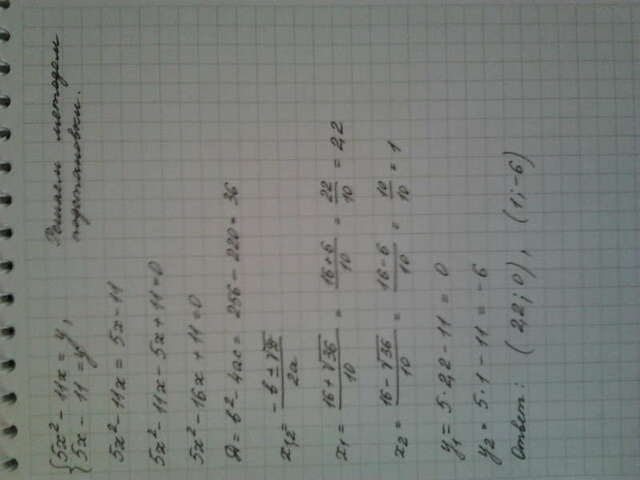 {5x² - 11x = y,
5x - 11 = y
Решаем методом
подстановки.
5x² - 11x = 5x - 11
5x² - 11x - 5x + 11 = 0
5x² - 16x + 11 = 0
D = b² - 4ac = 256 - 220 = 36
x₁,₂ = (-b ± √D)/2a
x₁ = (16 + √36)/10 = (16 + 6)/10 = 22/10 = 2,2
x₂ = (16 - √36)/10 = (16 - 6)/10 = 10/10 = 1
y₁ = 5 · 2,2 - 11 = 0
y₂ = 5 · 1 - 11 = -6
Ответ: (2,2; 0), (1; -6)